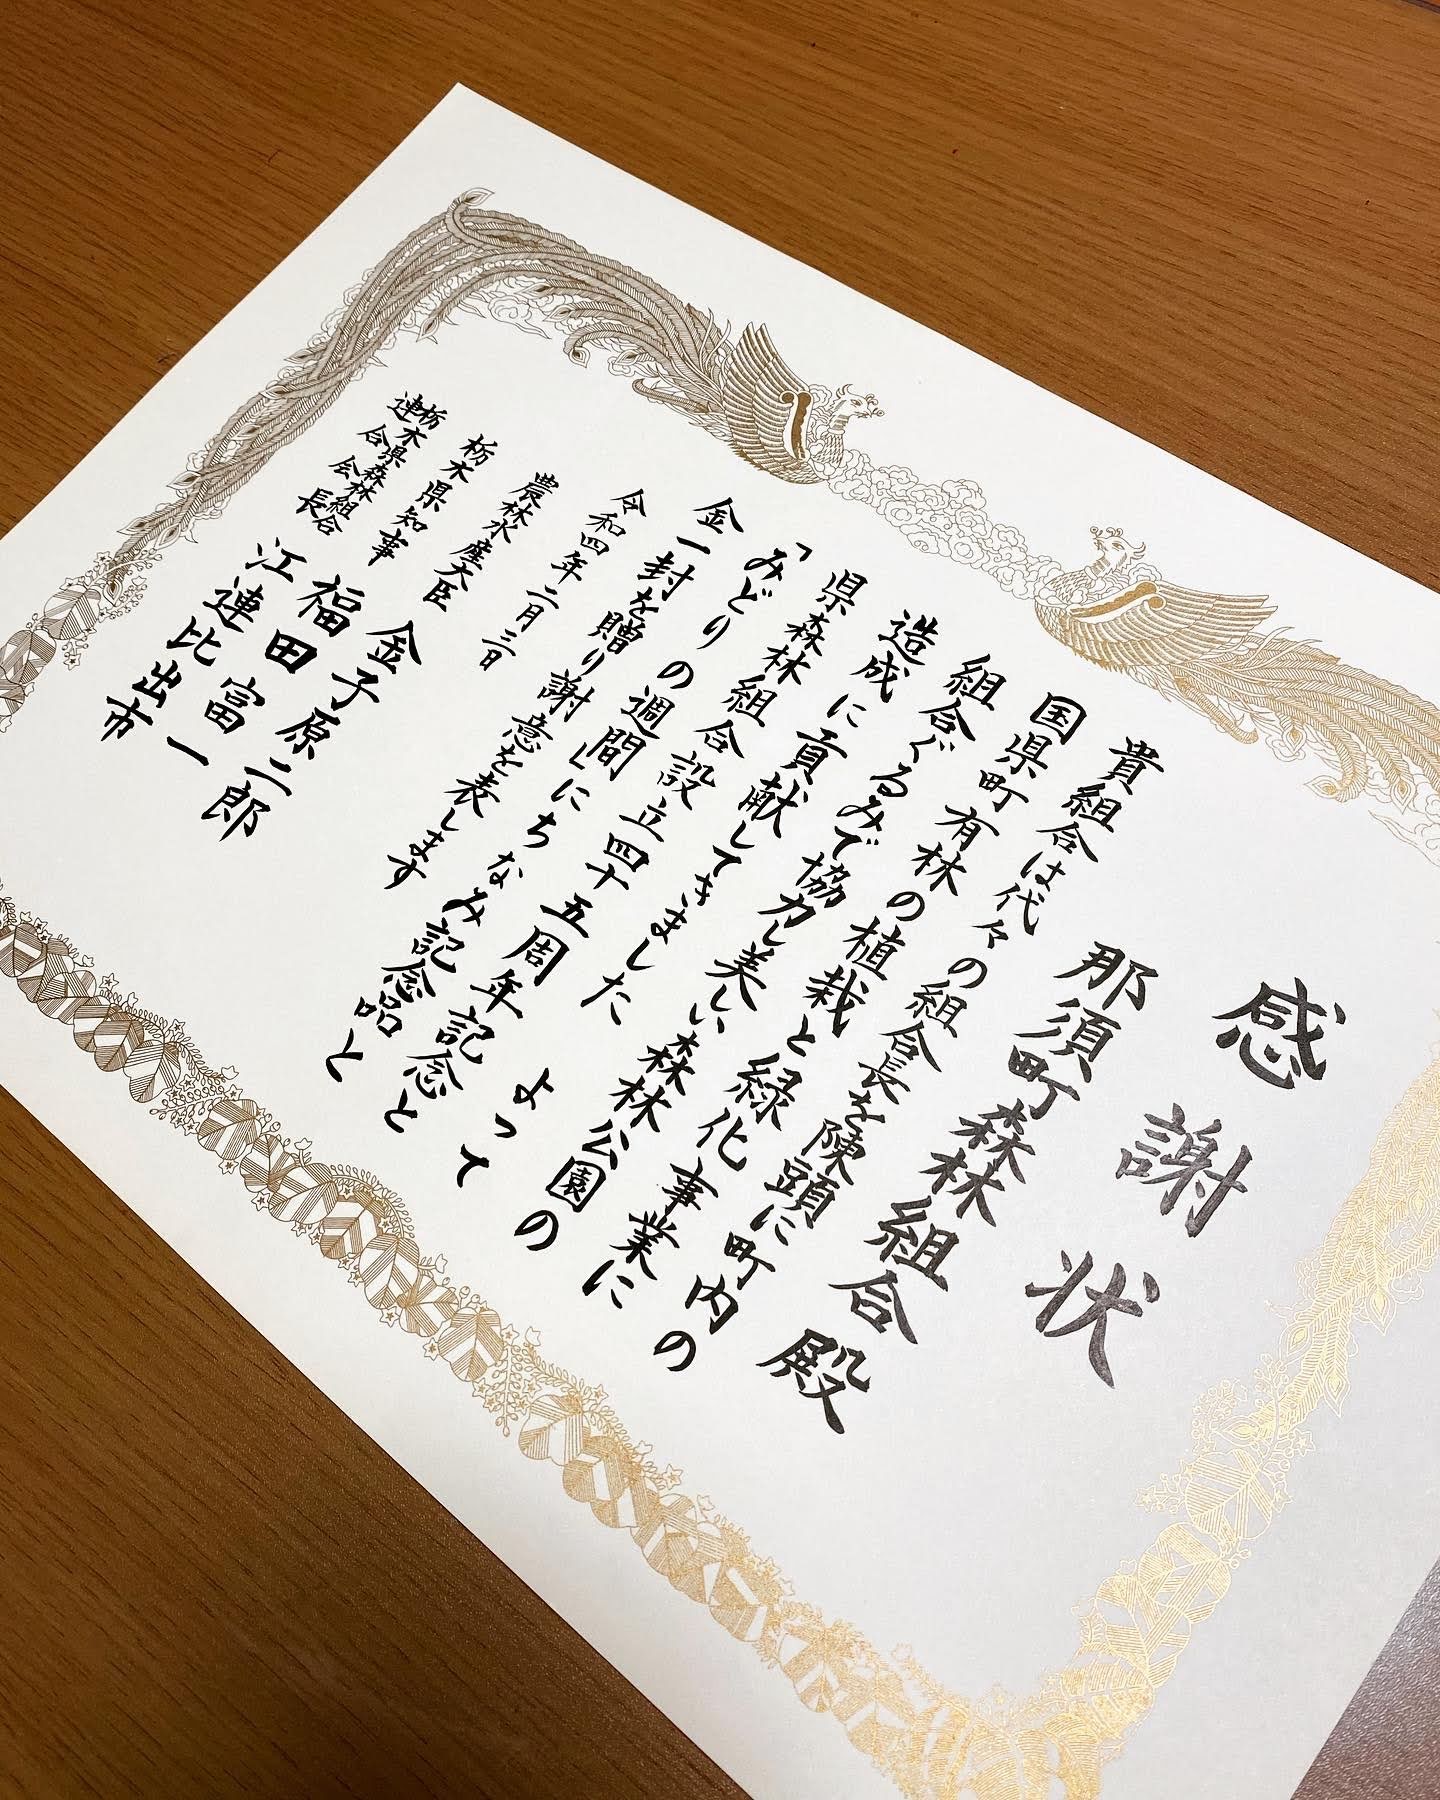 感謝状
那須町森林組合殿
貴組合は代々の組合長を陳頭に町内の
国県町有林の植栽と緑化事業に
組合ぐるみで協力し美しい森林公園の
造成に貢献してきました よって
県森林組合設立四十五周年記念と
「みどりの週間」にちなみ記念品と
金一封を贈り謝意を表します
令和四年二月三日
農林水産大臣 金子原二郎
栃木県知事 福田富一
栃木県森林組合
連合会長 江連比出市